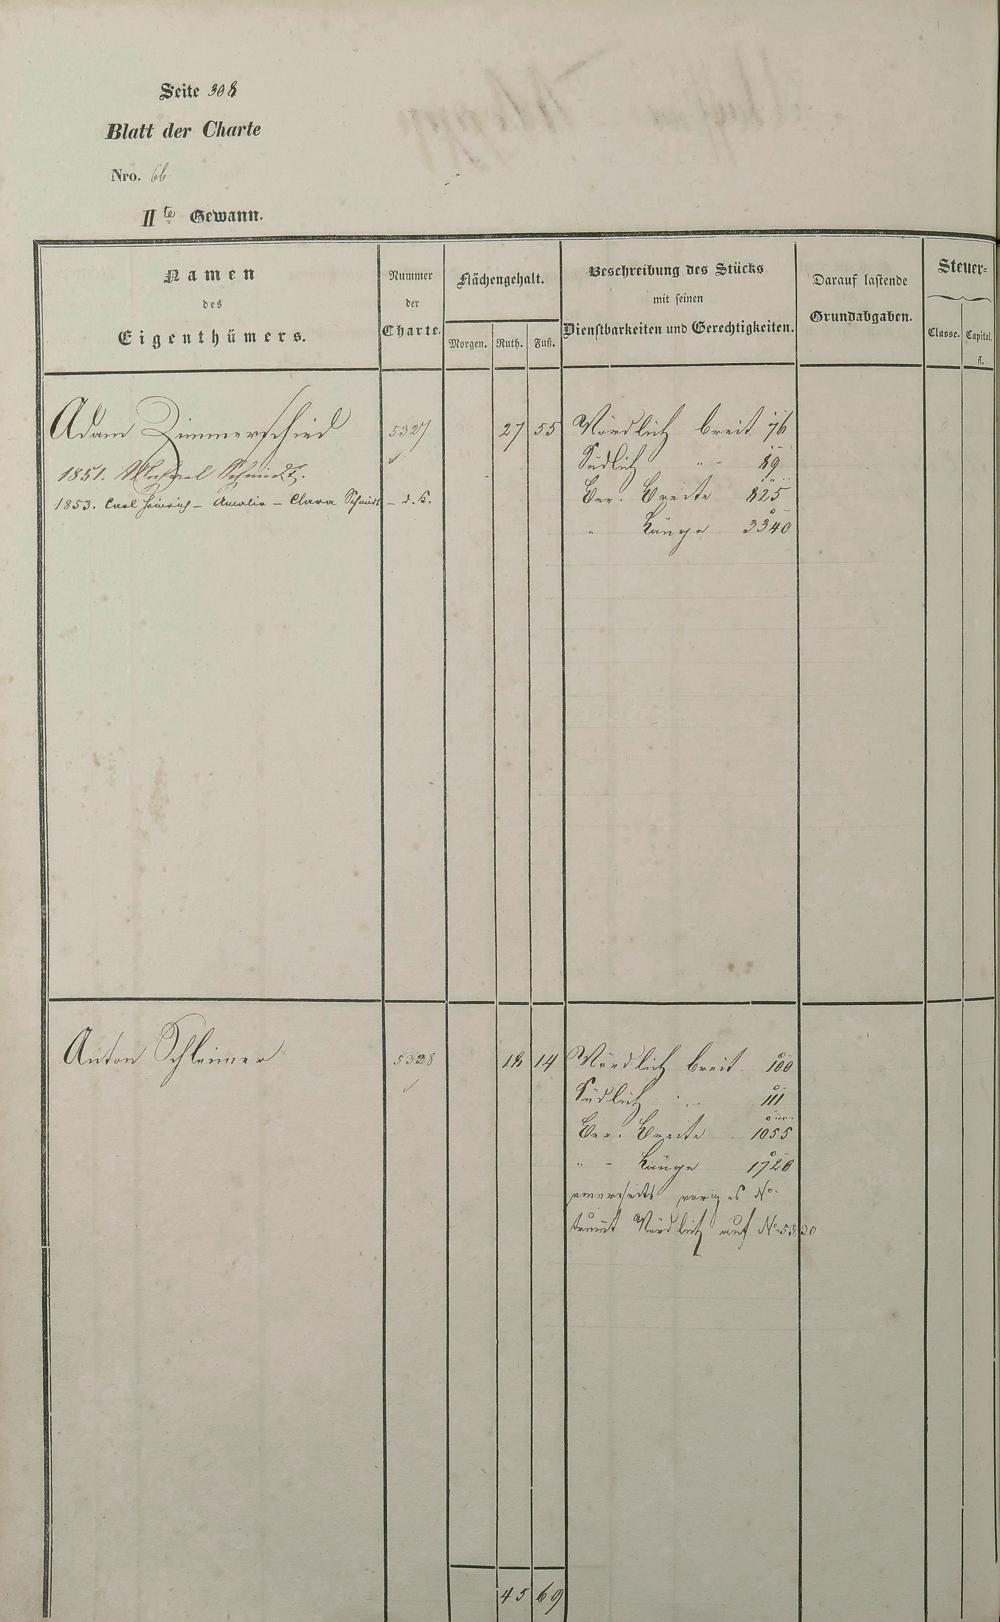 Seite 308
Blatt der Charte
Nro. 66
II te Gewann.
Namen des Eigenthümers.
Nummer der Charte.
Flächengehalt.
Morgen. Ruth. Fuß.
Beschreibung des Stücks mit seinen Dienstbarkeiten und Gerechtigkeiten.
Darauf lastende Grundabgaben.
Steuer-
Classe. Capital. fl.
Adam Zimmerschied 5327 27 55 Nördlich breit 76
1851. Schmidt. Südlich " 89
1853. Carl Heinrich – Amalia – Clara Schmidt – d. K. Ber. Breite 825
" Länge 3340
Anton Schleimer 5328 18 14 Nördlich breit 100
Südlich " 111
Ber. Breite 1055
" - Länge 1720
einerseits voriges No.
Nördlich auf No. 5320
45 69